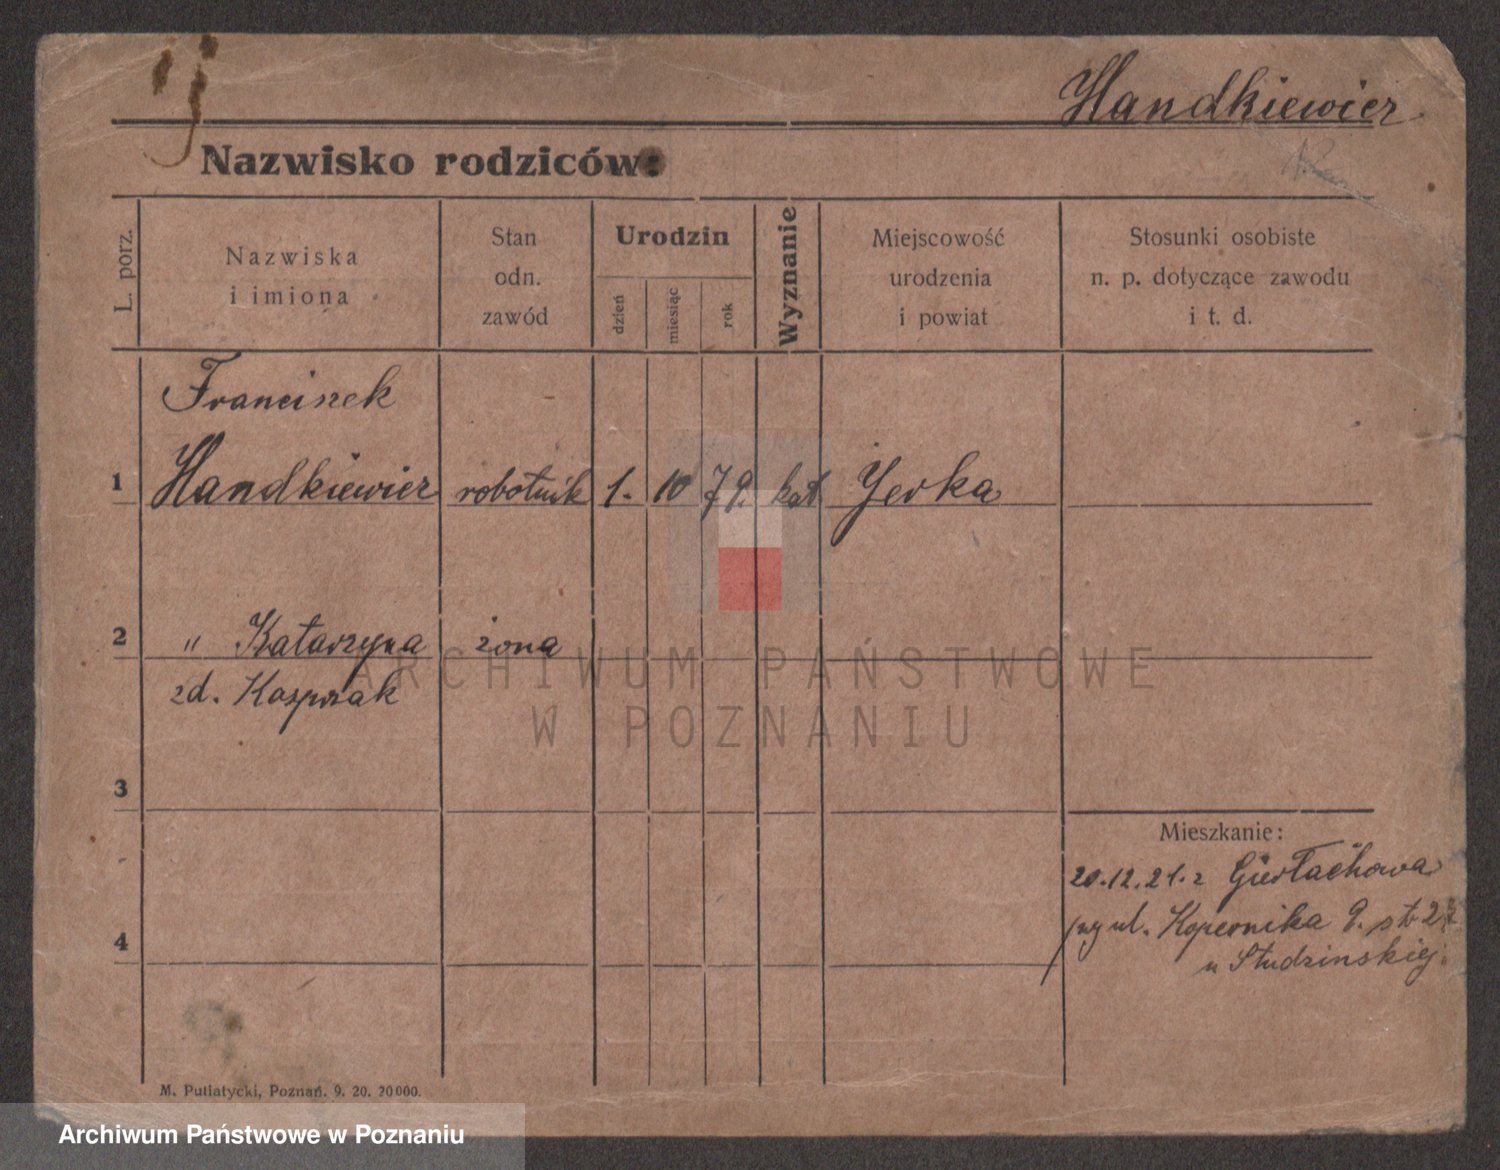 Handkiewicz
Nazwisko rodziców:
L. porz.
Nazwiska
i imiona
Stan
odn.
zawód
Urodzin
dzień
miesiąc
rok
Wyznanie
Miejscowość
urodzenia
i powiat
Stosunki osobiste
n. p. dotyczące zawodu
i t. d.
Franciszek
1 Handkiewicz robotnik 1. 10 79. kat. Jerka
2 " Katarzyna żona
zd. Kasprzak
3
Mieszkanie:
20.12.21. z Gierłachowa
ul. Kopernika 9. str 2
4
u Studzinskiej
M. Putiatycki, Poznań. 9. 20. 20000.
ARCHIWUM PAŃSTWOWE
W POZNANIU
Archiwum Państwowe w Poznaniu